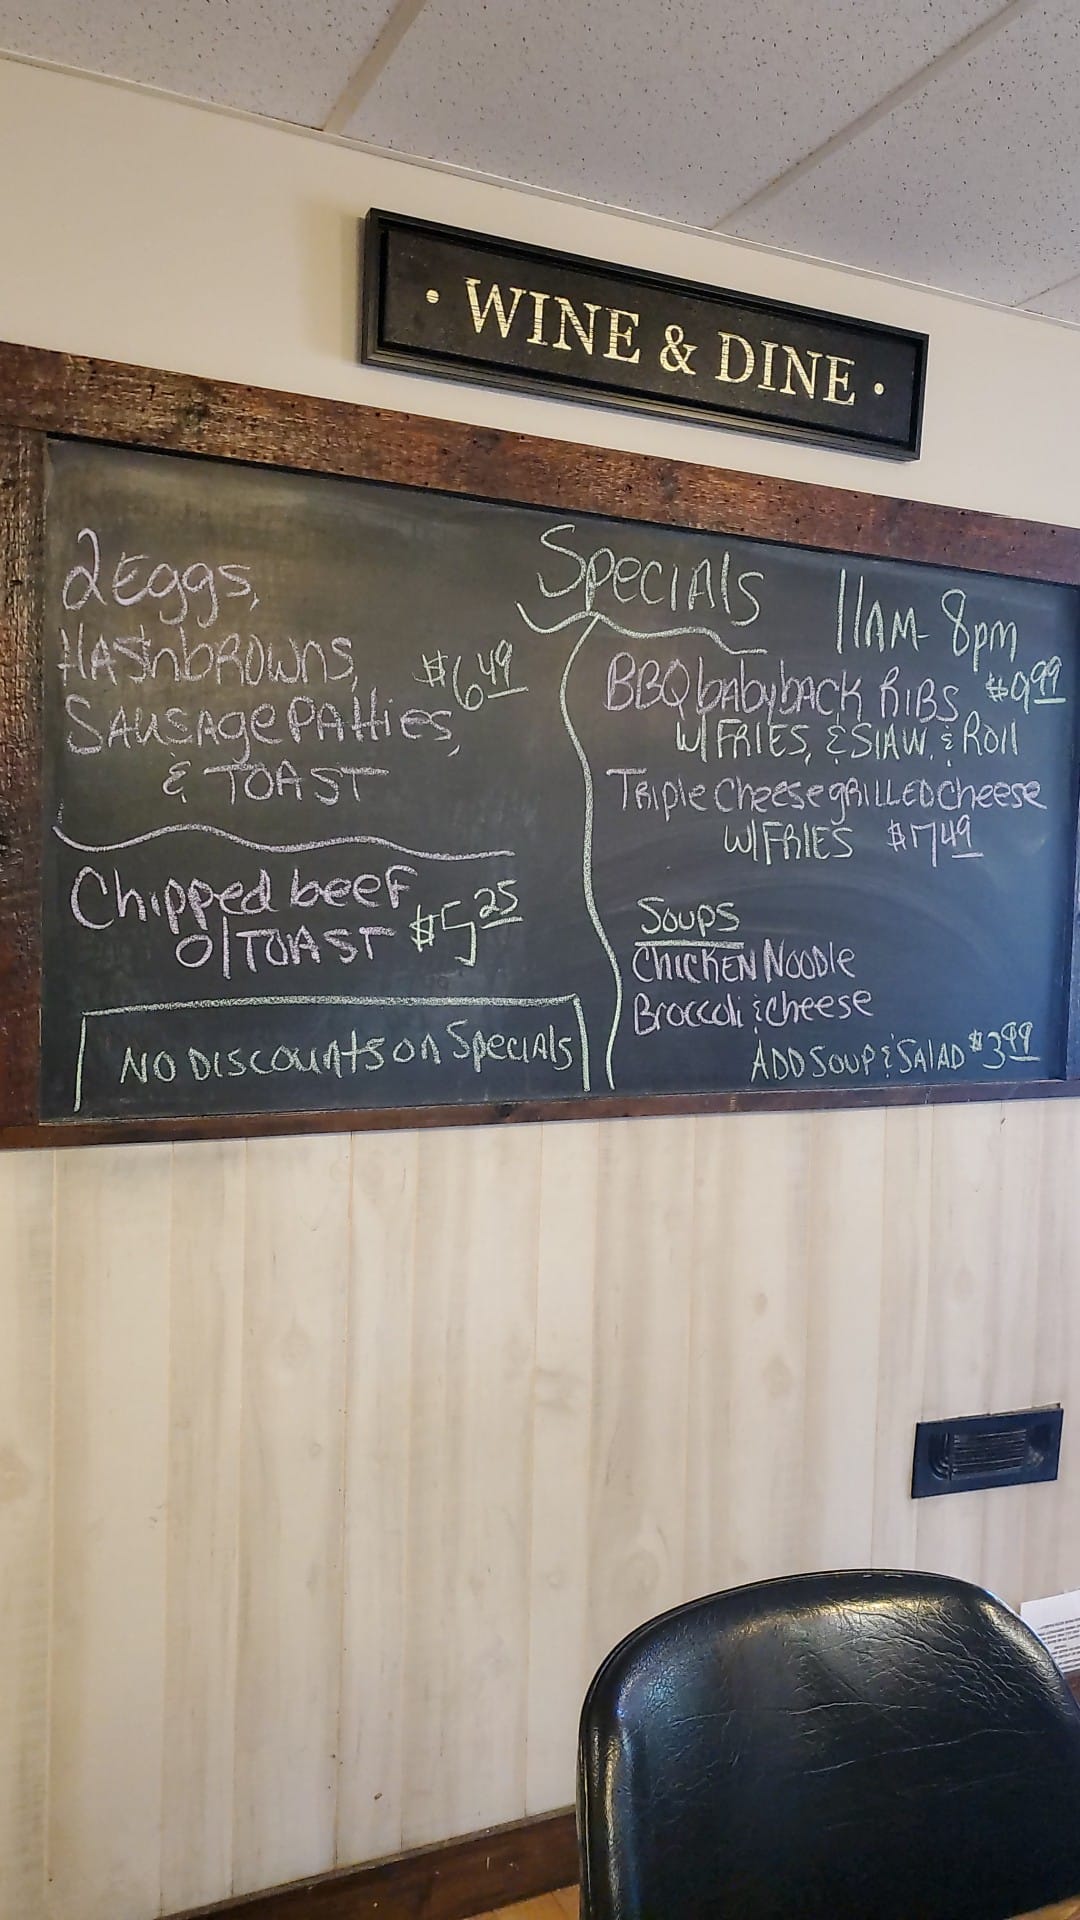 · WINE & DINE ·
Specials
2 Eggs,
HAShbROWNS,
SAUSAgePAtties,
& TOAST
$6.49
Chipped beef
O/TOAST $5.25
NO DISCOUNtS on Specials
11AM-8pm
BBQ babyback RIBS $9.99
W/FRIES, & SlAW, & Roll
Triple Cheese gRILLED Cheese
W/FRIES $7.49
Soups
Chicken Noodle
Broccoli & cheese
ADD SOUP & SAlAD $3.99